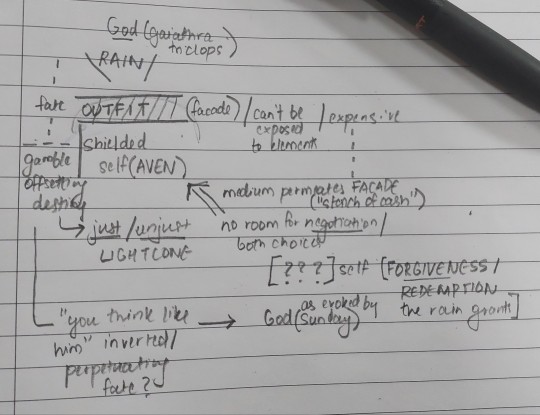 God (gaiathra
triclops)
\ RAIN /
fate OUTFIT (facade) / can't be / expensive
exposed
to elements
shielded
self (AVEN)
gamble
offsetting
destiny
medium permeates FACADE
("stench of cash")
just / unjust
LIGHTCONE
no room for negotiation /
both choices
[???] self [FORGIVENESS /
REDEMPTION
the rain grants]
"you think like
him" inverted /
perpetuating
fate?
God (Sunday)
as evoked by